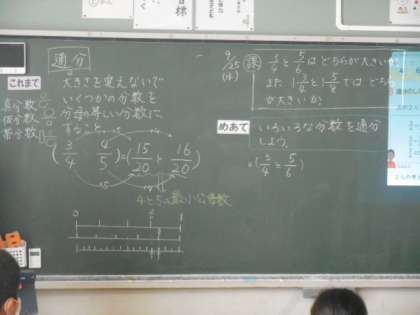 通分
これまで
大きさを変えないで
いくつかの分数を
分母の等しい分数に
すること
真分数
仮分数
帯分数
(3/4 4/5)=(15/20, 16/20)
4と5の最小公倍数
0
9/25
(水)
課
と5/6はどちらが大きいか。
また 1 3/4と1 5/8では どちら
が大きいか。
めあて
いろいろな分数を通分
しよう。
(3/4 と 5/6)